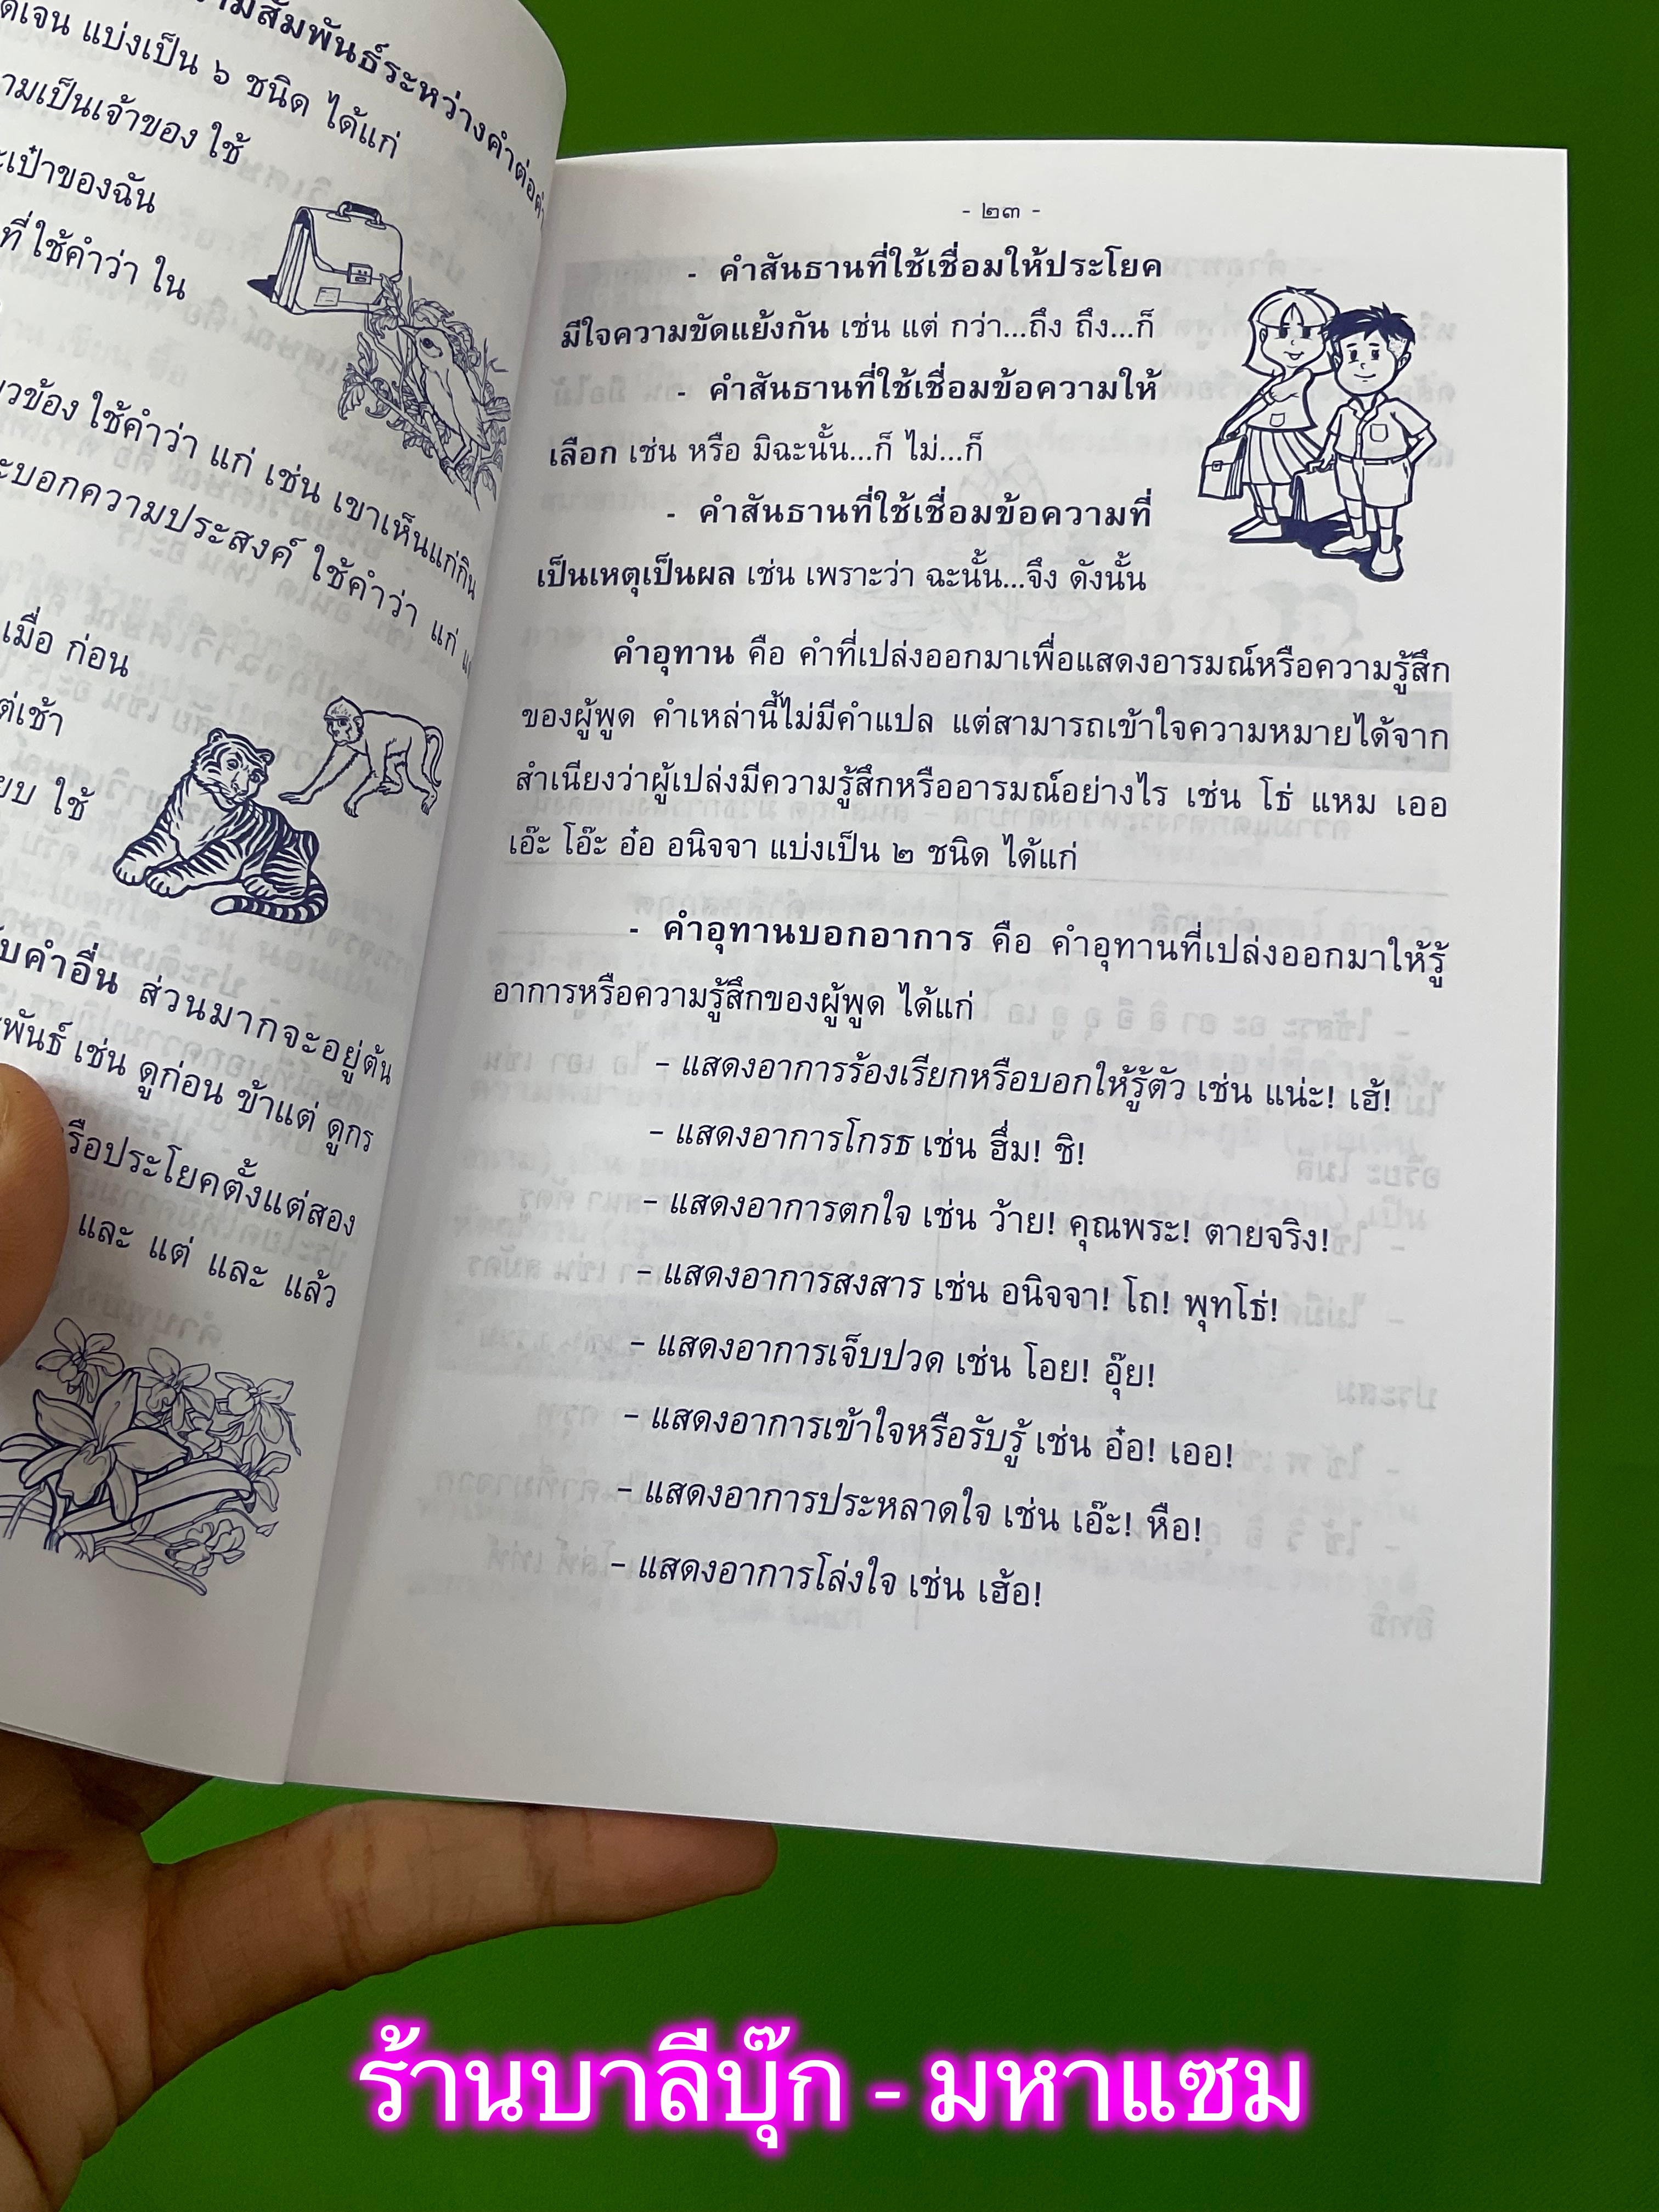 ามสัมพันธ์ระหว่างคำต่อคำ
ดเจน แบ่งเป็น ๖ ชนิด ได้แก่
ามเป็นเจ้าของ ใช้
ะเป๋าของฉัน
ที่ ใช้คำว่า ใน
ยวข้อง ใช้คำว่า แก่ เช่น เขาเห็นแก่กิน
ะบอกความประสงค์ ใช้คำว่า แก่
เมื่อ ก่อน
ต่เช้า
ยบ ใช้
ับคำอื่น ส่วนมากจะอยู่ต้น
พันธ์ เช่น ดูก่อน ข้าแต่ ดูกร
รือประโยคตั้งแต่สอง
และ แต่ และ แล้ว
- ๒๓ -
- คำสันธานที่ใช้เชื่อมให้ประโยค
มีใจความขัดแย้งกัน เช่น แต่ กว่า...ถึง ถึง...ก็
- คำสันธานที่ใช้เชื่อมข้อความให้
เลือก เช่น หรือ มิฉะนั้น...ก็ ไม่...ก็
- คำสันธานที่ใช้เชื่อมข้อความที่
เป็นเหตุเป็นผล เช่น เพราะว่า ฉะนั้น...จึง ดังนั้น
คำอุทาน คือ คำที่เปล่งออกมาเพื่อแสดงอารมณ์หรือความรู้สึก
ของผู้พูด คำเหล่านี้ไม่มีคำแปล แต่สามารถเข้าใจความหมายได้จาก
สำเนียงว่าผู้เปล่งมีความรู้สึกหรืออารมณ์อย่างไร เช่น โธ่ แหม เออ
เอ๊ะ โอ๊ะ อ๋อ อนิจจา แบ่งเป็น ๒ ชนิด ได้แก่
- คำอุทานบอกอาการ คือ คำอุทานที่เปล่งออกมาให้รู้
อาการหรือความรู้สึกของผู้พูด ได้แก่
– แสดงอาการร้องเรียกหรือบอกให้รู้ตัว เช่น แน่ะ! เฮ้!
– แสดงอาการโกรธ เช่น ฮึ่ม! ชิ!
– แสดงอาการตกใจ เช่น ว้าย! คุณพระ! ตายจริง!
– แสดงอาการสงสาร เช่น อนิจจา! โถ! พุทโธ่!
– แสดงอาการเจ็บปวด เช่น โอย! อุ๊ย!
– แสดงอาการเข้าใจหรือรับรู้ เช่น อ๋อ! เออ!
– แสดงอาการประหลาดใจ เช่น เอ๊ะ! หือ!
– แสดงอาการโล่งใจ เช่น เฮ้อ!
ร้านบาลีบุ๊ก - มหาแซม